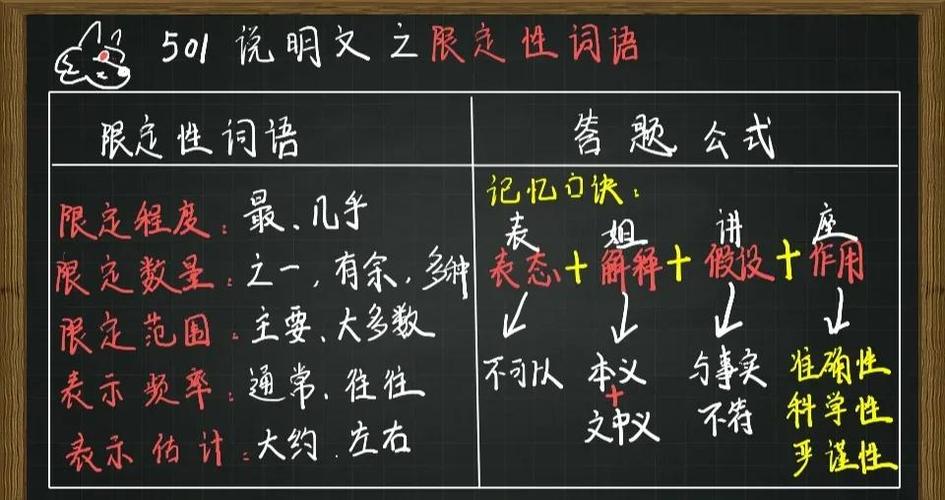 501 说明文之限定性词语
限定性词语
限定程度：最、几乎
限定数量：之一，有余，多种
限定范围：主要、大多数
表示频率：通常、往往
表示估计：大约、左右
答题公式
记忆口诀：
表 姐 讲 座
表态+解释+假设+作用
不可以 本义 与事实 准确性
+
文中义 不符 科学性
严谨性